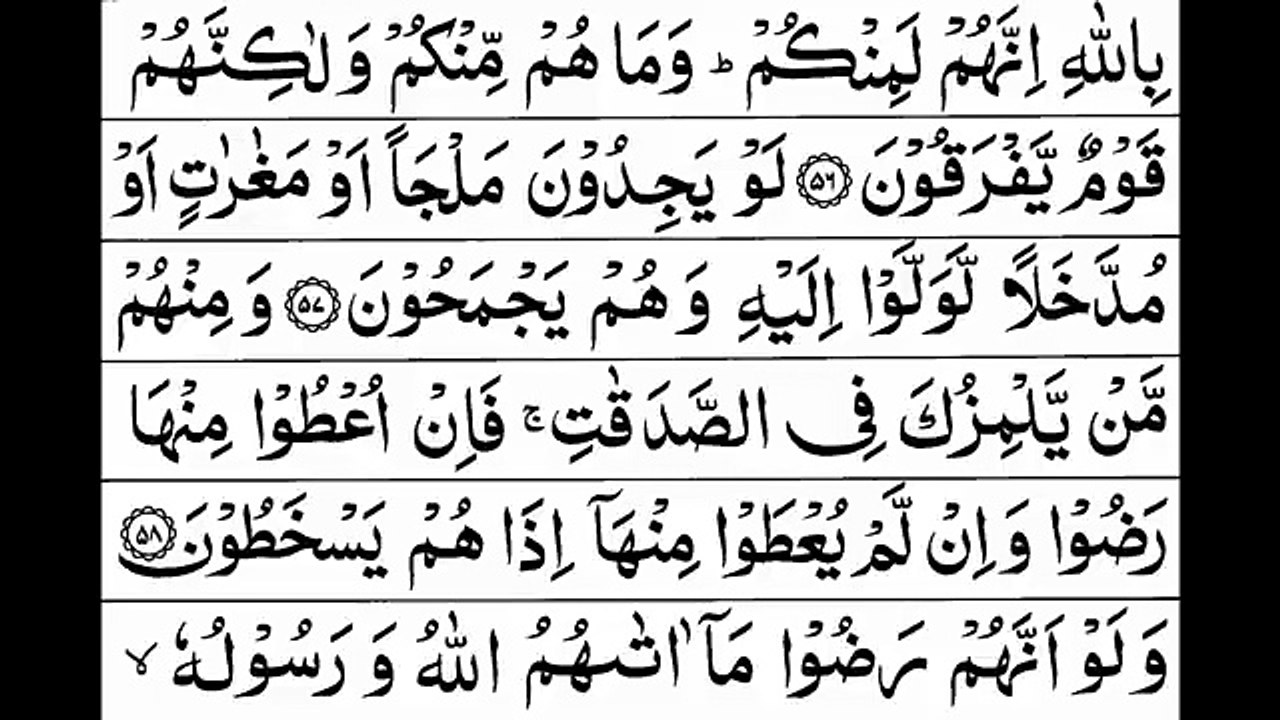 بِاللّٰهِ اِنَّهُمۡ لَمِنۡكُمۡ ؕ وَمَا هُمۡ مِّنۡكُمۡ وَ لٰـكِنَّهُمۡ
قَوۡمٌ يَّفۡرَقُوۡنَ ۵۶ لَوۡ يَجِدُوۡنَ مَلۡجَاً اَوۡ مَغٰرٰتٍ اَوۡ
مُدَّخَلًا لَّوَلَّوۡا اِلَيۡهِ وَ هُمۡ يَجۡمَحُوۡنَ ۵۷ وَ مِنۡهُمۡ
مَّنۡ يَّلۡمِزُكَ فِى الصَّدَقٰتِ ۚ فَاِنۡ اُعۡطُوۡا مِنۡهَا
رَضُوۡا وَاِنۡ لَّمۡ يُعۡطَوۡا مِنۡهَاۤ اِذَا هُمۡ يَسۡخَطُوۡنَ ۵۸
وَ لَوۡ اَنَّهُمۡ رَضُوۡا مَاۤ اٰتٰٮهُمُ اللّٰهُ وَ رَسُوۡلُهٗ ۙ